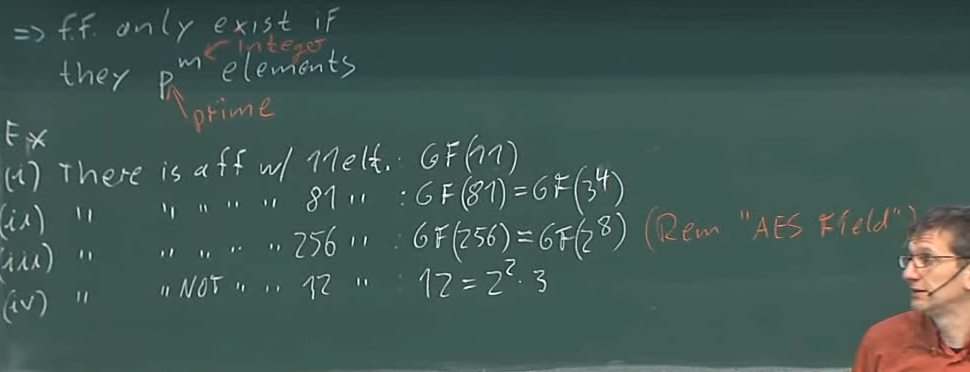 => f.f. only exist if
they p^m elements
integer
prime
Ex
(i) There is a ff w/ 11 elt. : GF(11)
(ii) " " " " " 81 " : GF(81) = GF(3^4)
(iii) " " " " " 256 " : GF(256) = GF(2^8) (Rem "AES Field")
(iv) " " NOT " " 12 " : 12 = 2^2 · 3